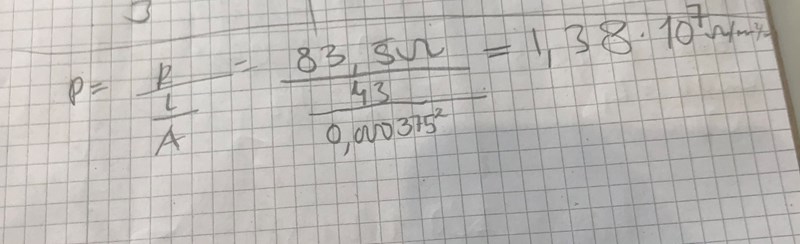 3
ρ = R / (L / A) = 83,5Ω / (43 / 0,000375²) = 1,38 · 10⁷